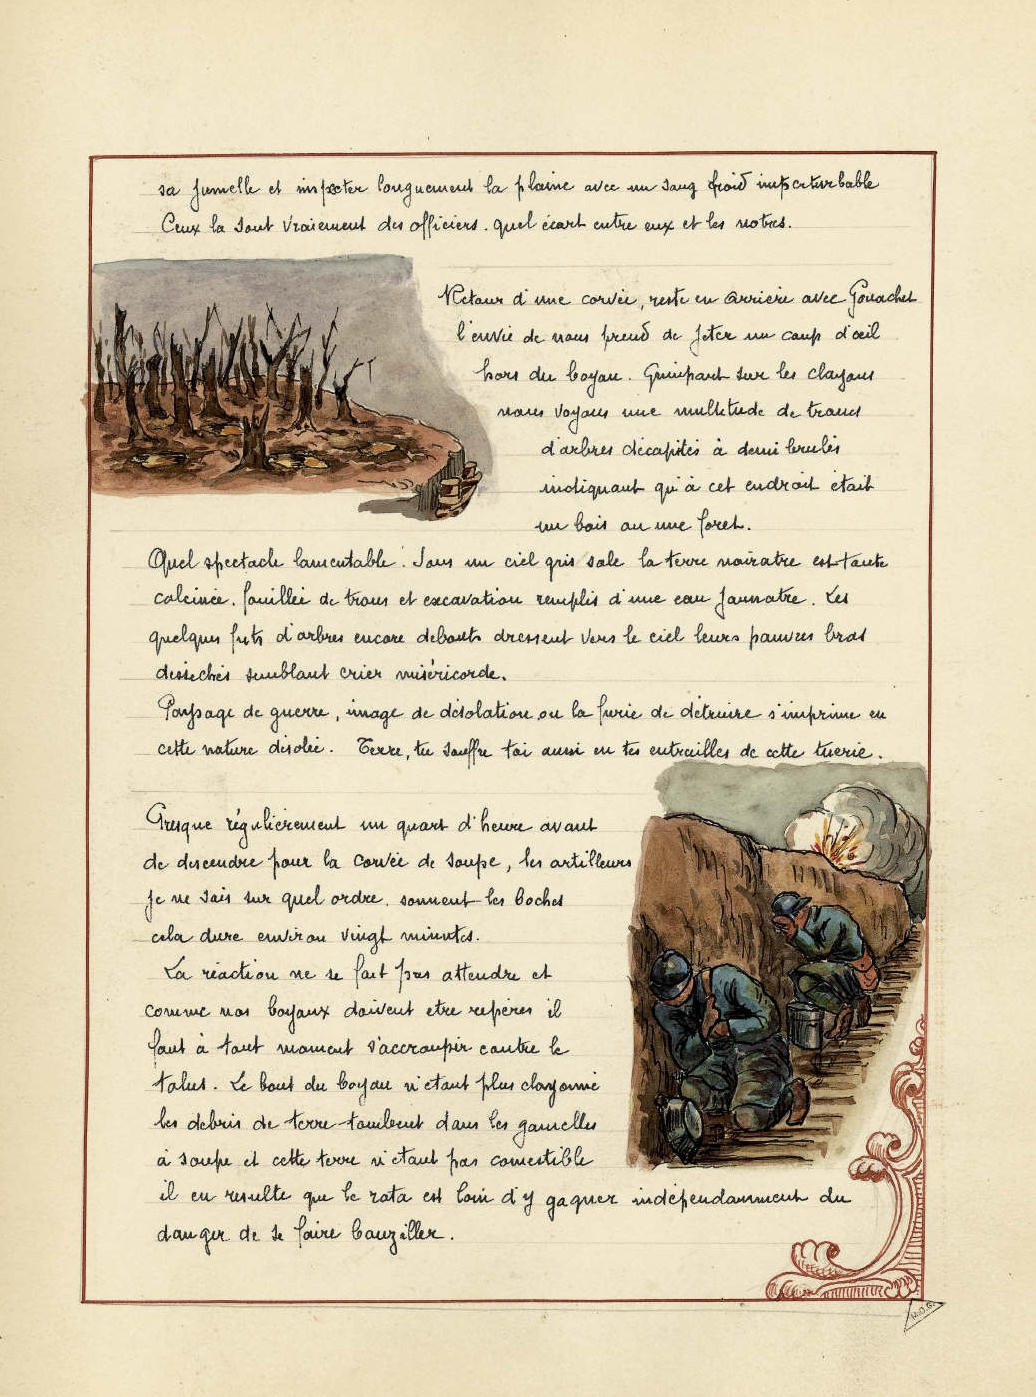 sa jumelle et inspecter longuement la plaine avec un sang froid imperturbable
Ceux la sont vraiement des officiers. quel écart entre eux et les notres.
Retour d'une corvée, resté en arrière avec Gouachet
l'envie de nous prend de jeter un coup d'œil
hors du boyau. Grimpant sur les clayons
nous voyons une multitude de troncs
d'arbres décapités à demi brulés
indiquant qu'à cet endroit était
un bois ou une foret.
Quel spectacle lamentable. Sous un ciel gris sale la terre noiratre est toute
calcinée. fouillée de trous et excavation remplis d'une eau jaunatre. Les
quelques futs d'arbres encore debouts dressent vers le ciel leurs pauvres bras
desséchés semblant crier miséricorde.
Paysage de guerre, image de désolation ou la furie de détruire s'imprime en
cette nature désolée. Terre, tu souffre toi aussi en tes entrailles de cette tuerie.
Presque régulièrement un quart d'heure avant
de descendre pour la corvée de soupe, les artilleurs
je ne sais sur quel ordre. sonnent les boches
cela dure environ vingt minutes.
La réaction ne se fait pas attendre et
comme nos boyaux doivent etre repérés il
faut à tout moment s'accroupir contre le
talus. Le bout du boyau n'étant plus clayonné
les debris de terre tombent dans les gamelles
à soupe et cette terre n'étant pas comestible
il en resulte que le rata est loin d'y gagner indépendamment du
danger de se faire bouziller.
M.O.G.